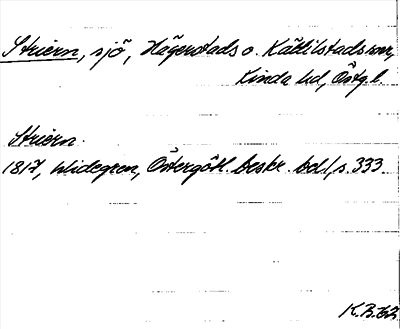 Striern, sjö, Hägerstads o. Kättilstads snr,
Kinda hd, Östgl.
Striern.
1817, Widegren, Östergötl. beskr. bd 1, s. 333.
K.B.62